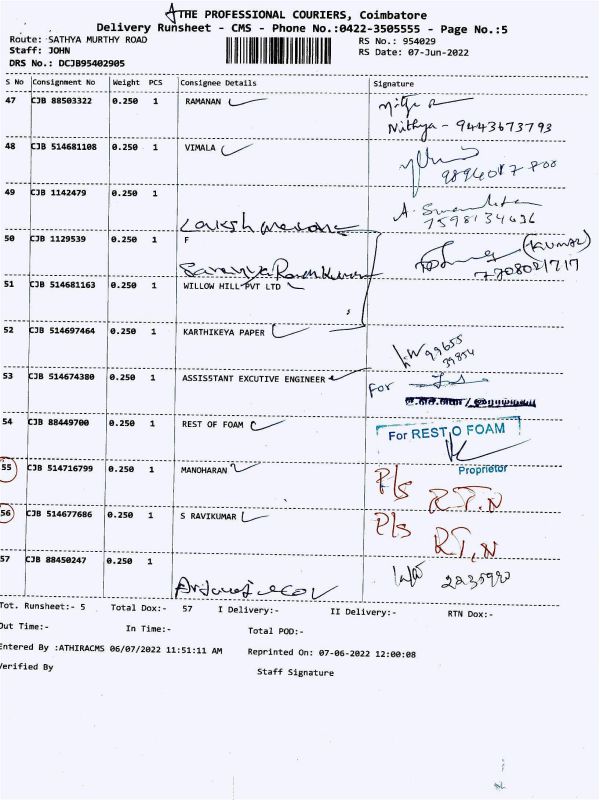 THE PROFESSIONAL COURIERS, Coimbatore
Delivery Runsheet - CMS - Phone No.:0422-3505555 - Page No.:5
Route: SATHYA MURTHY ROAD
RS No.: 954029
Staff: JOHN
RS Date: 07-Jun-2022
DRS No.: DCJB95402905
S No Consignment No Weight PCS Consignee Details Signature
47 CJB 88503322 0.250 1 RAMANAN
Nithya - 9443673793
48 CJB 514681108 0.250 1 VIMALA
49 CJB 1142479 0.250 1
7598134636
50 CJB 1129539 0.250 1 F
(KUMAR)
7708021717
51 CJB 514681163 0.250 1 WILLOW HILL PVT LTD
52 CJB 514697464 0.250 1 KARTHIKEYA PAPER
99655
39854
53 CJB 514674380 0.250 1 ASSISSTANT EXCUTIVE ENGINEER
For
54 CJB 88449700 0.250 1 REST OF FOAM
For REST O FOAM
Proprietor
55 CJB 514716799 0.250 1 MANOHARAN
Pls R.T.N
56 CJB 514677686 0.250 1 S RAVIKUMAR
Pls RT,N
57 CJB 88450247 0.250 1
Tot. Runsheet:- 5 Total Dox:- 57 I Delivery:- II Delivery:- RTN Dox:-
Out Time:- In Time:- Total POD:-
Entered By :ATHIRACMS 06/07/2022 11:51:11 AM Reprinted On: 07-06-2022 12:00:08
Verified By
Staff Signature